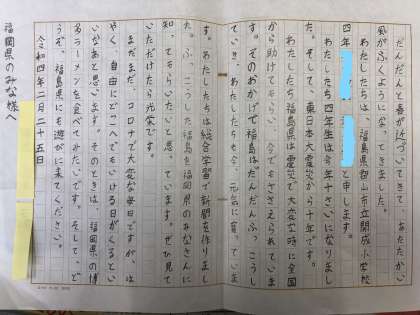 だんだんと春が近づいてきて、あたたかい
風がふくようになってきました。
わたしたちは、福島県郡山市立開成小学校
四年
と申します。
わたしたち四年生は今年十さいになりまし
た。そして、東日本大震災から十年です。
わたしたち福島県は震災で大変な時に全国
から助けてもらい、今でもささえられていま
す。そのおかげで福島はだんだんふっこうし
ていき、わたしたちも今、元気に育っていま
す。わたしたちは総合学習で新聞を作りまし
た。ふっこうした福島を福岡県のみなさんに
知ってもらいたいと思っています。ぜひ見て
いただけたら光栄です。
まだまだ、コロナで大変な毎日ですが、は
やく、自由にどこへでもいける日がくるとい
いなあと思います。そのときは、福岡県の博
多ラーメンを食べてみたいです。そして、ど
うぞ、福島県にも遊びに来てください。
令和四年二月二十五日
福岡県のみな様へ